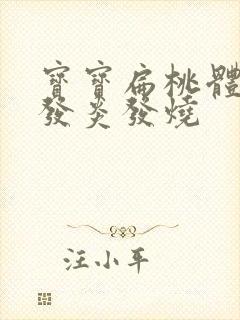 寶寶扁桃體
發炎發燒
汪小平